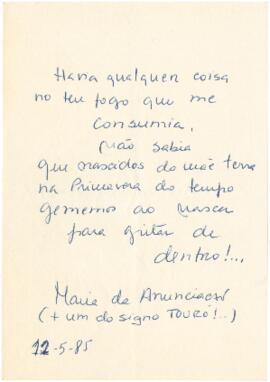 Havia qualquer coisa
no teu fogo que me
consumia.
Não sabia
que nascidos da mãe terra
na Primavera do tempo
gememos ao nascer
para gritar de
dentro!...
Maria da Anunciação
(+ um do signo TOURO!..)
12-5-85